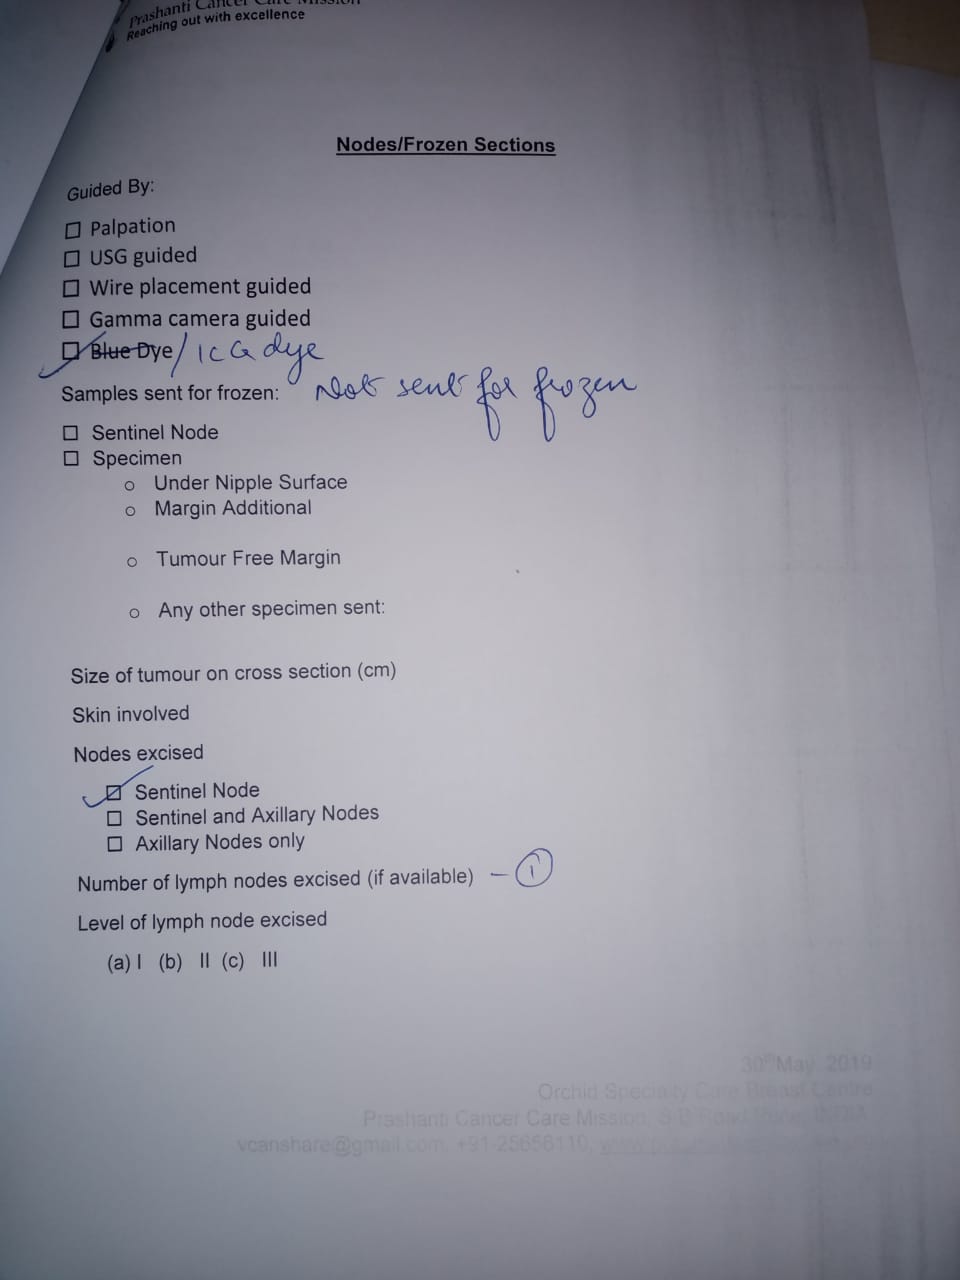 Prashanti Cancer Care Mission
Reaching out with excellence
Nodes/Frozen Sections
Guided By:
☐ Palpation
☐ USG guided
☐ Wire placement guided
☐ Gamma camera guided
☑ Blue Dye/ ICG dye
Samples sent for frozen: Not sent for frozen
☐ Sentinel Node
☐ Specimen
o Under Nipple Surface
o Margin Additional
o Tumour Free Margin
o Any other specimen sent:
Size of tumour on cross section (cm)
Skin involved
Nodes excised
☑ Sentinel Node
☐ Sentinel and Axillary Nodes
☐ Axillary Nodes only
Number of lymph nodes excised (if available) – 1
Level of lymph node excised
(a) I (b) II (c) III
30th May, 2019
Orchid Specialty Care Breast Centre
Prashanti Cancer Care Mission,
vcanshare@gmail.com, +91-25658110,